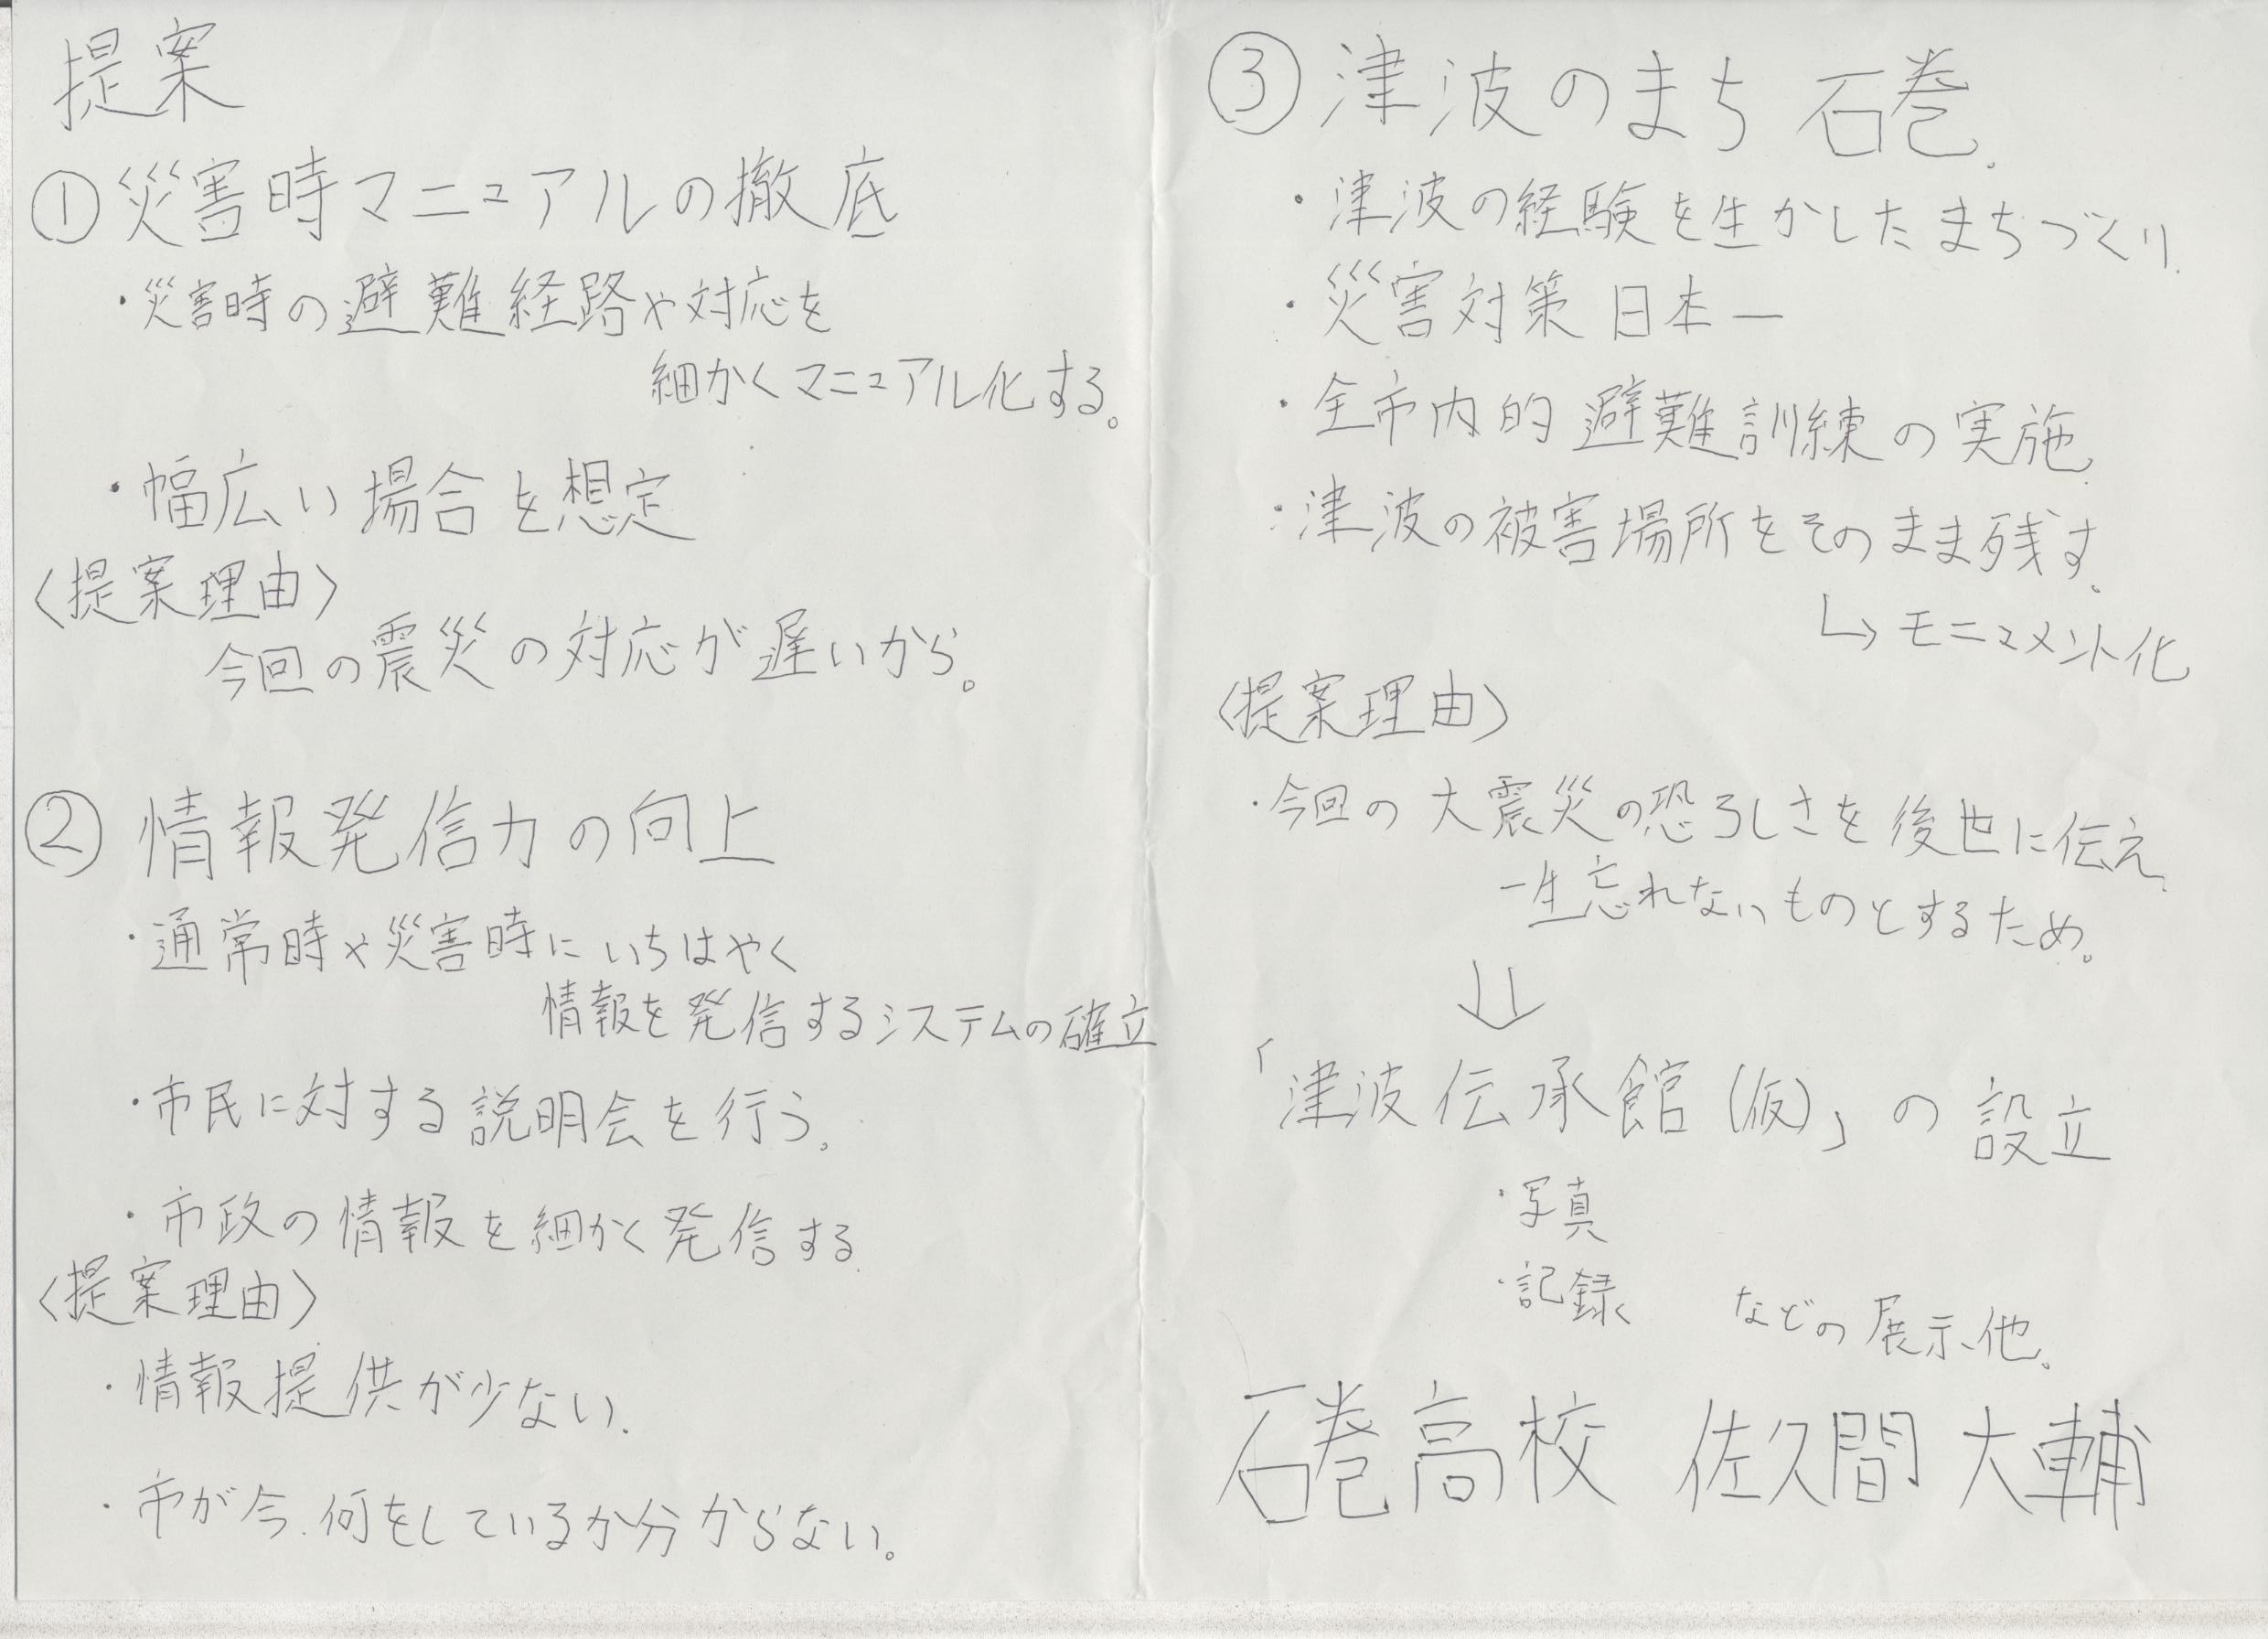 提案
① 災害時マニュアルの撤底
・災害時の避難経路や対応を
細かくマニュアル化する。
・幅広い場合を想定
〈提案理由〉
今回の震災の対応が遅いから。
② 情報発信力の向上
・通常時や災害時にいちはやく
情報を発信するシステムの確立
・市民に対する説明会を行う。
・市政の情報を細かく発信する
〈提案理由〉
・情報提供が少ない。
・市が今、何をしているか分からない。
③ 津波のまち 石巻.
・津波の経験を生かしたまちづくり.
・災害対策 日本一
・全市内的避難訓練の実施.
・津波の被害場所をそのまま残す.
↳ モニュメント化
〈提案理由〉
・今回の大震災の恐ろしさを後世に伝え、
一生忘れないものとするため。
⇓
「津波伝承館(仮)」の設立
・写真
・記録 などの展示、他。
石巻高校 佐久間 大輔